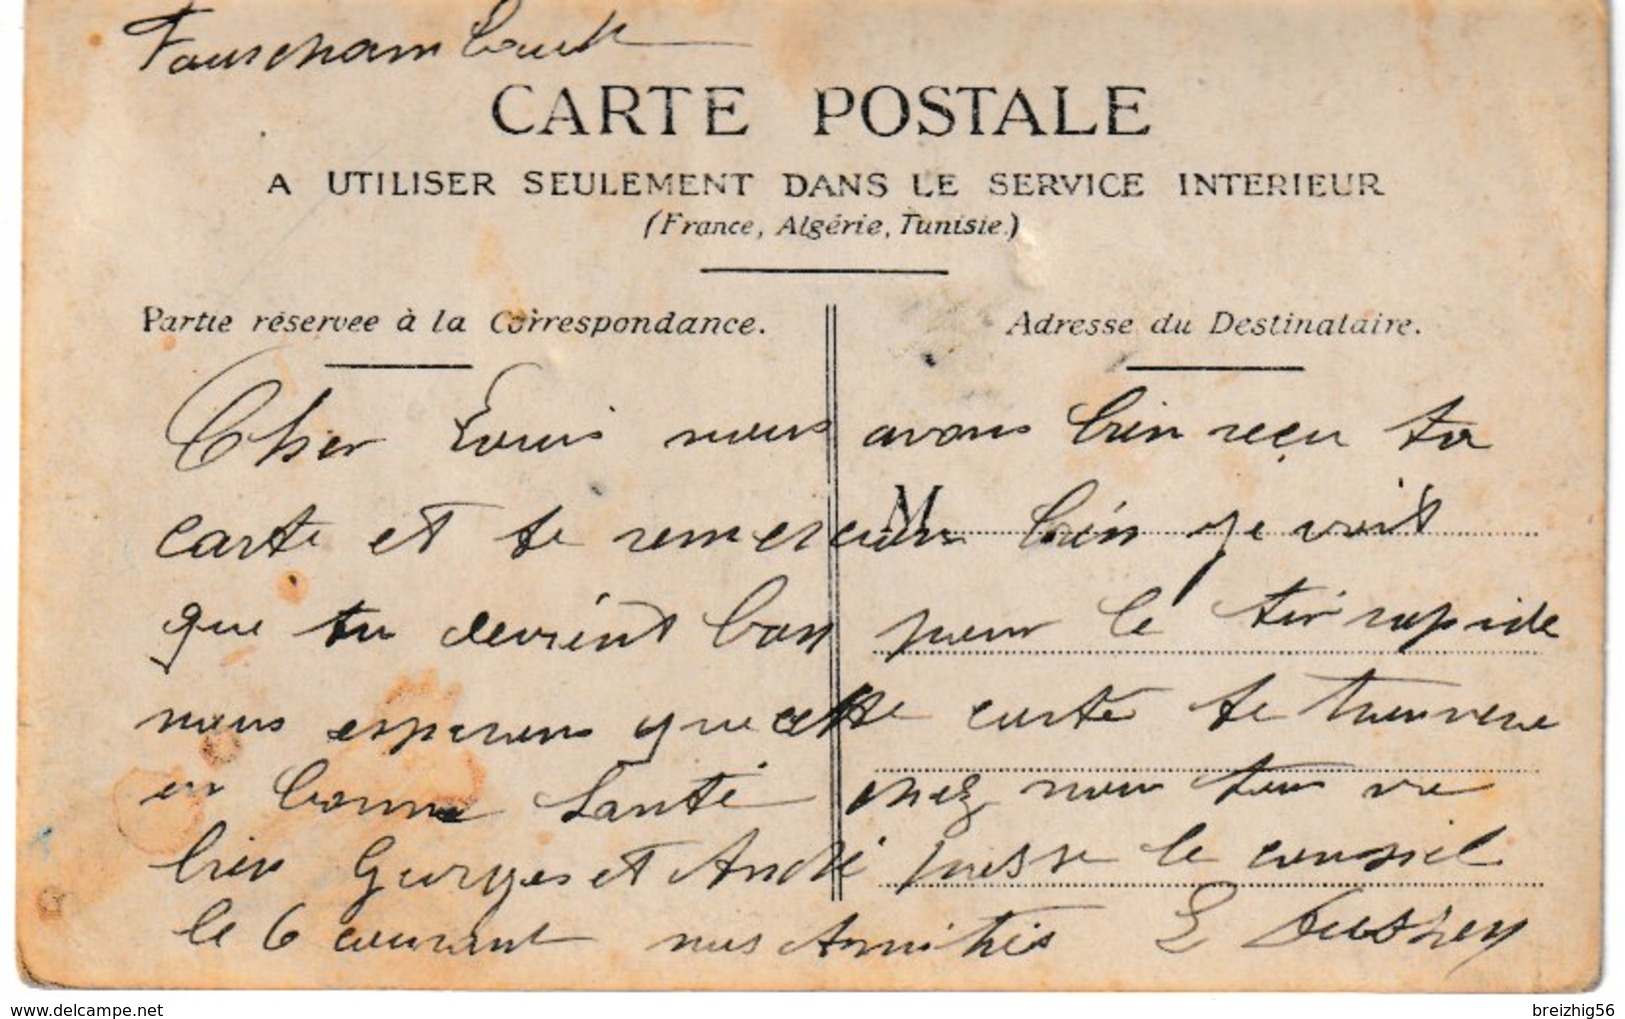 CARTE POSTALE
A UTILISER SEULEMENT DANS LE SERVICE INTERIEUR
(France, Algérie, Tunisie.)
Partie réservée à la Correspondance.
Adresse du Destinataire.
M
Cher Louis nous avons bien reçu ta
carte et te remercions bien je voit
que tu devient bon pour le tir rapide
nous esperons que cette carte te trouvera
en bonne Santé chez nous tous va
bien Gorges et André passe le conseil
le 6 courant nos Amitiés E
breizhig56